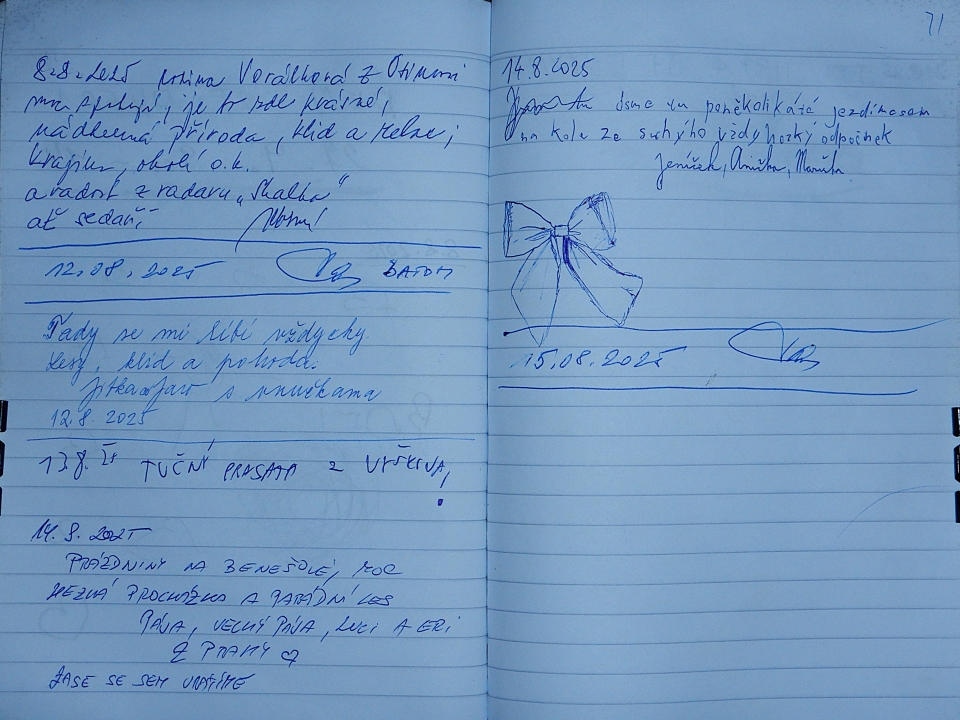 8.8.2025 rodina Vorálková z
je to zde krásné,
nádherná příroda, klid a
krajina, okolí o.k.
a radost z radaru „Skalka“
ať
12.08.2025 BATOH
Tady se mi líbí vždycky.
Lesy, klid a pohoda.
Jitka s vnučkama
12.8.2025
13.8. TUČNÝ PRASATA z VYŠKOVA,
14.8.2025
PRÁZDNINY NA BENEŠOVĚ, MOC
HEZKÁ PROCHÁZKA A PARÁDNÍ LES
PÁJA, VELKÝ PÁJA, LUCI A
Z PRAHY ♡
ZASE SE SEM VRÁTÍME
71
14.8.2025
Jsme tu poněkolikáté jezdíme sem
na kole ze suchýho vždy hezký odpočinek
Jeníček, Anička, Maruška
15.08.2025